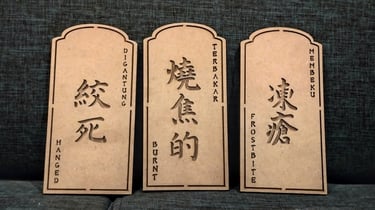 DIGANTUNG
絞死
HANGED
TERBAKAR
燒焦的
BURNT
MEMBEKU
凍瘡
FROSTBITE